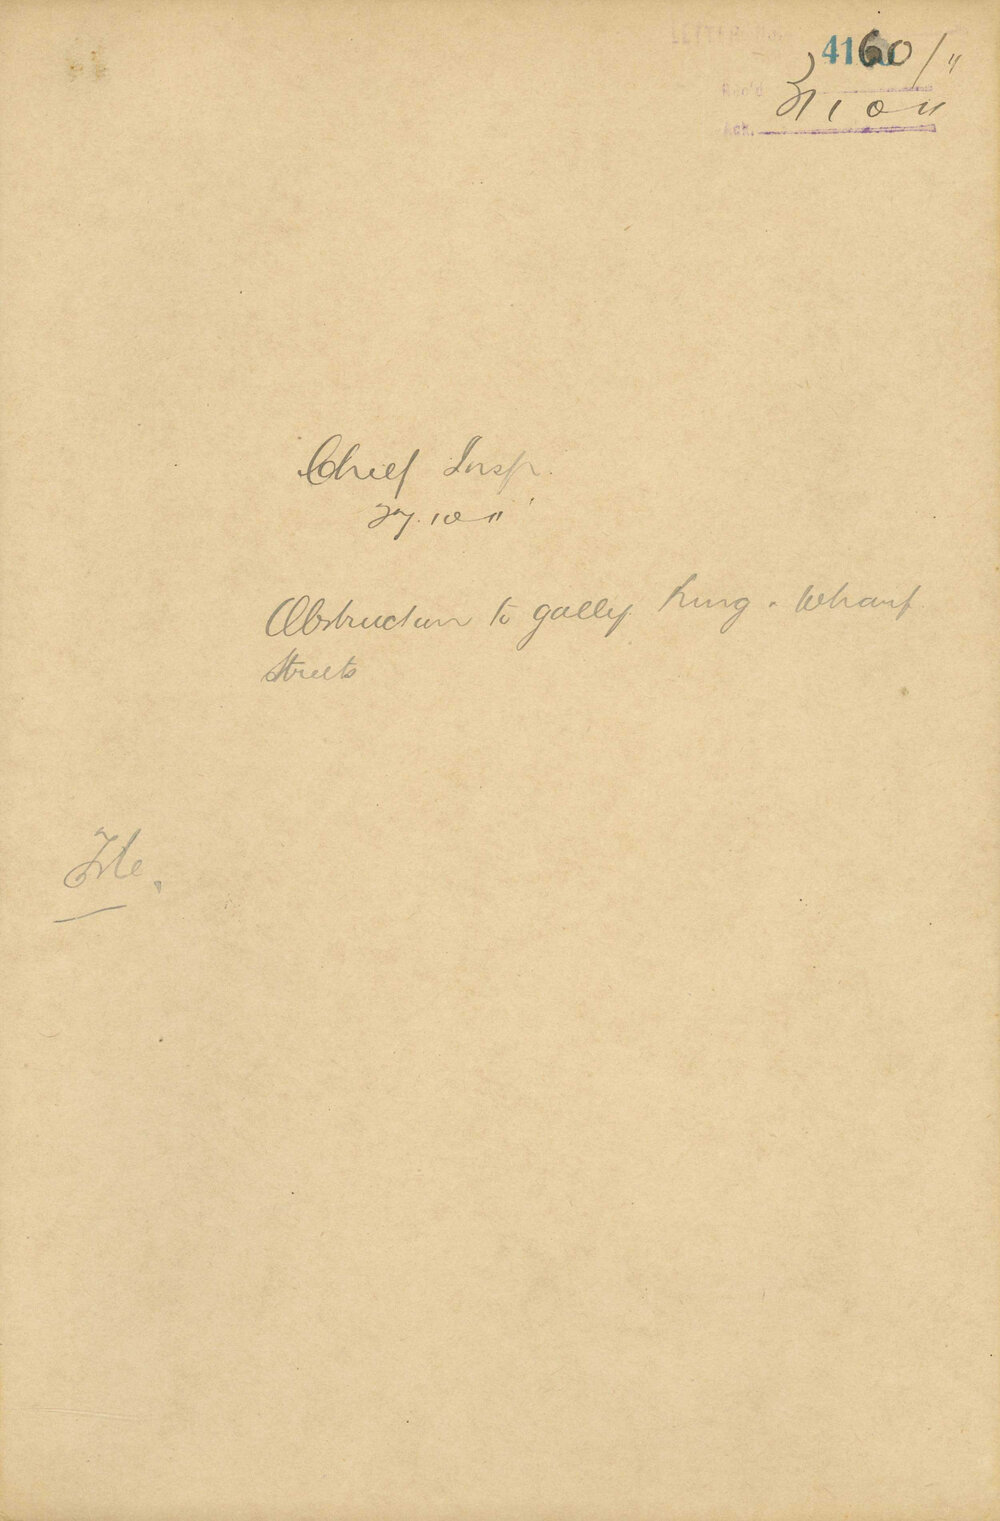 LETTER No.
4160/11
Rec'd 31 10 11
Ack.
Chief Insp.
27.10 11
Obstruction to gully King & Wharf
Streets
File.